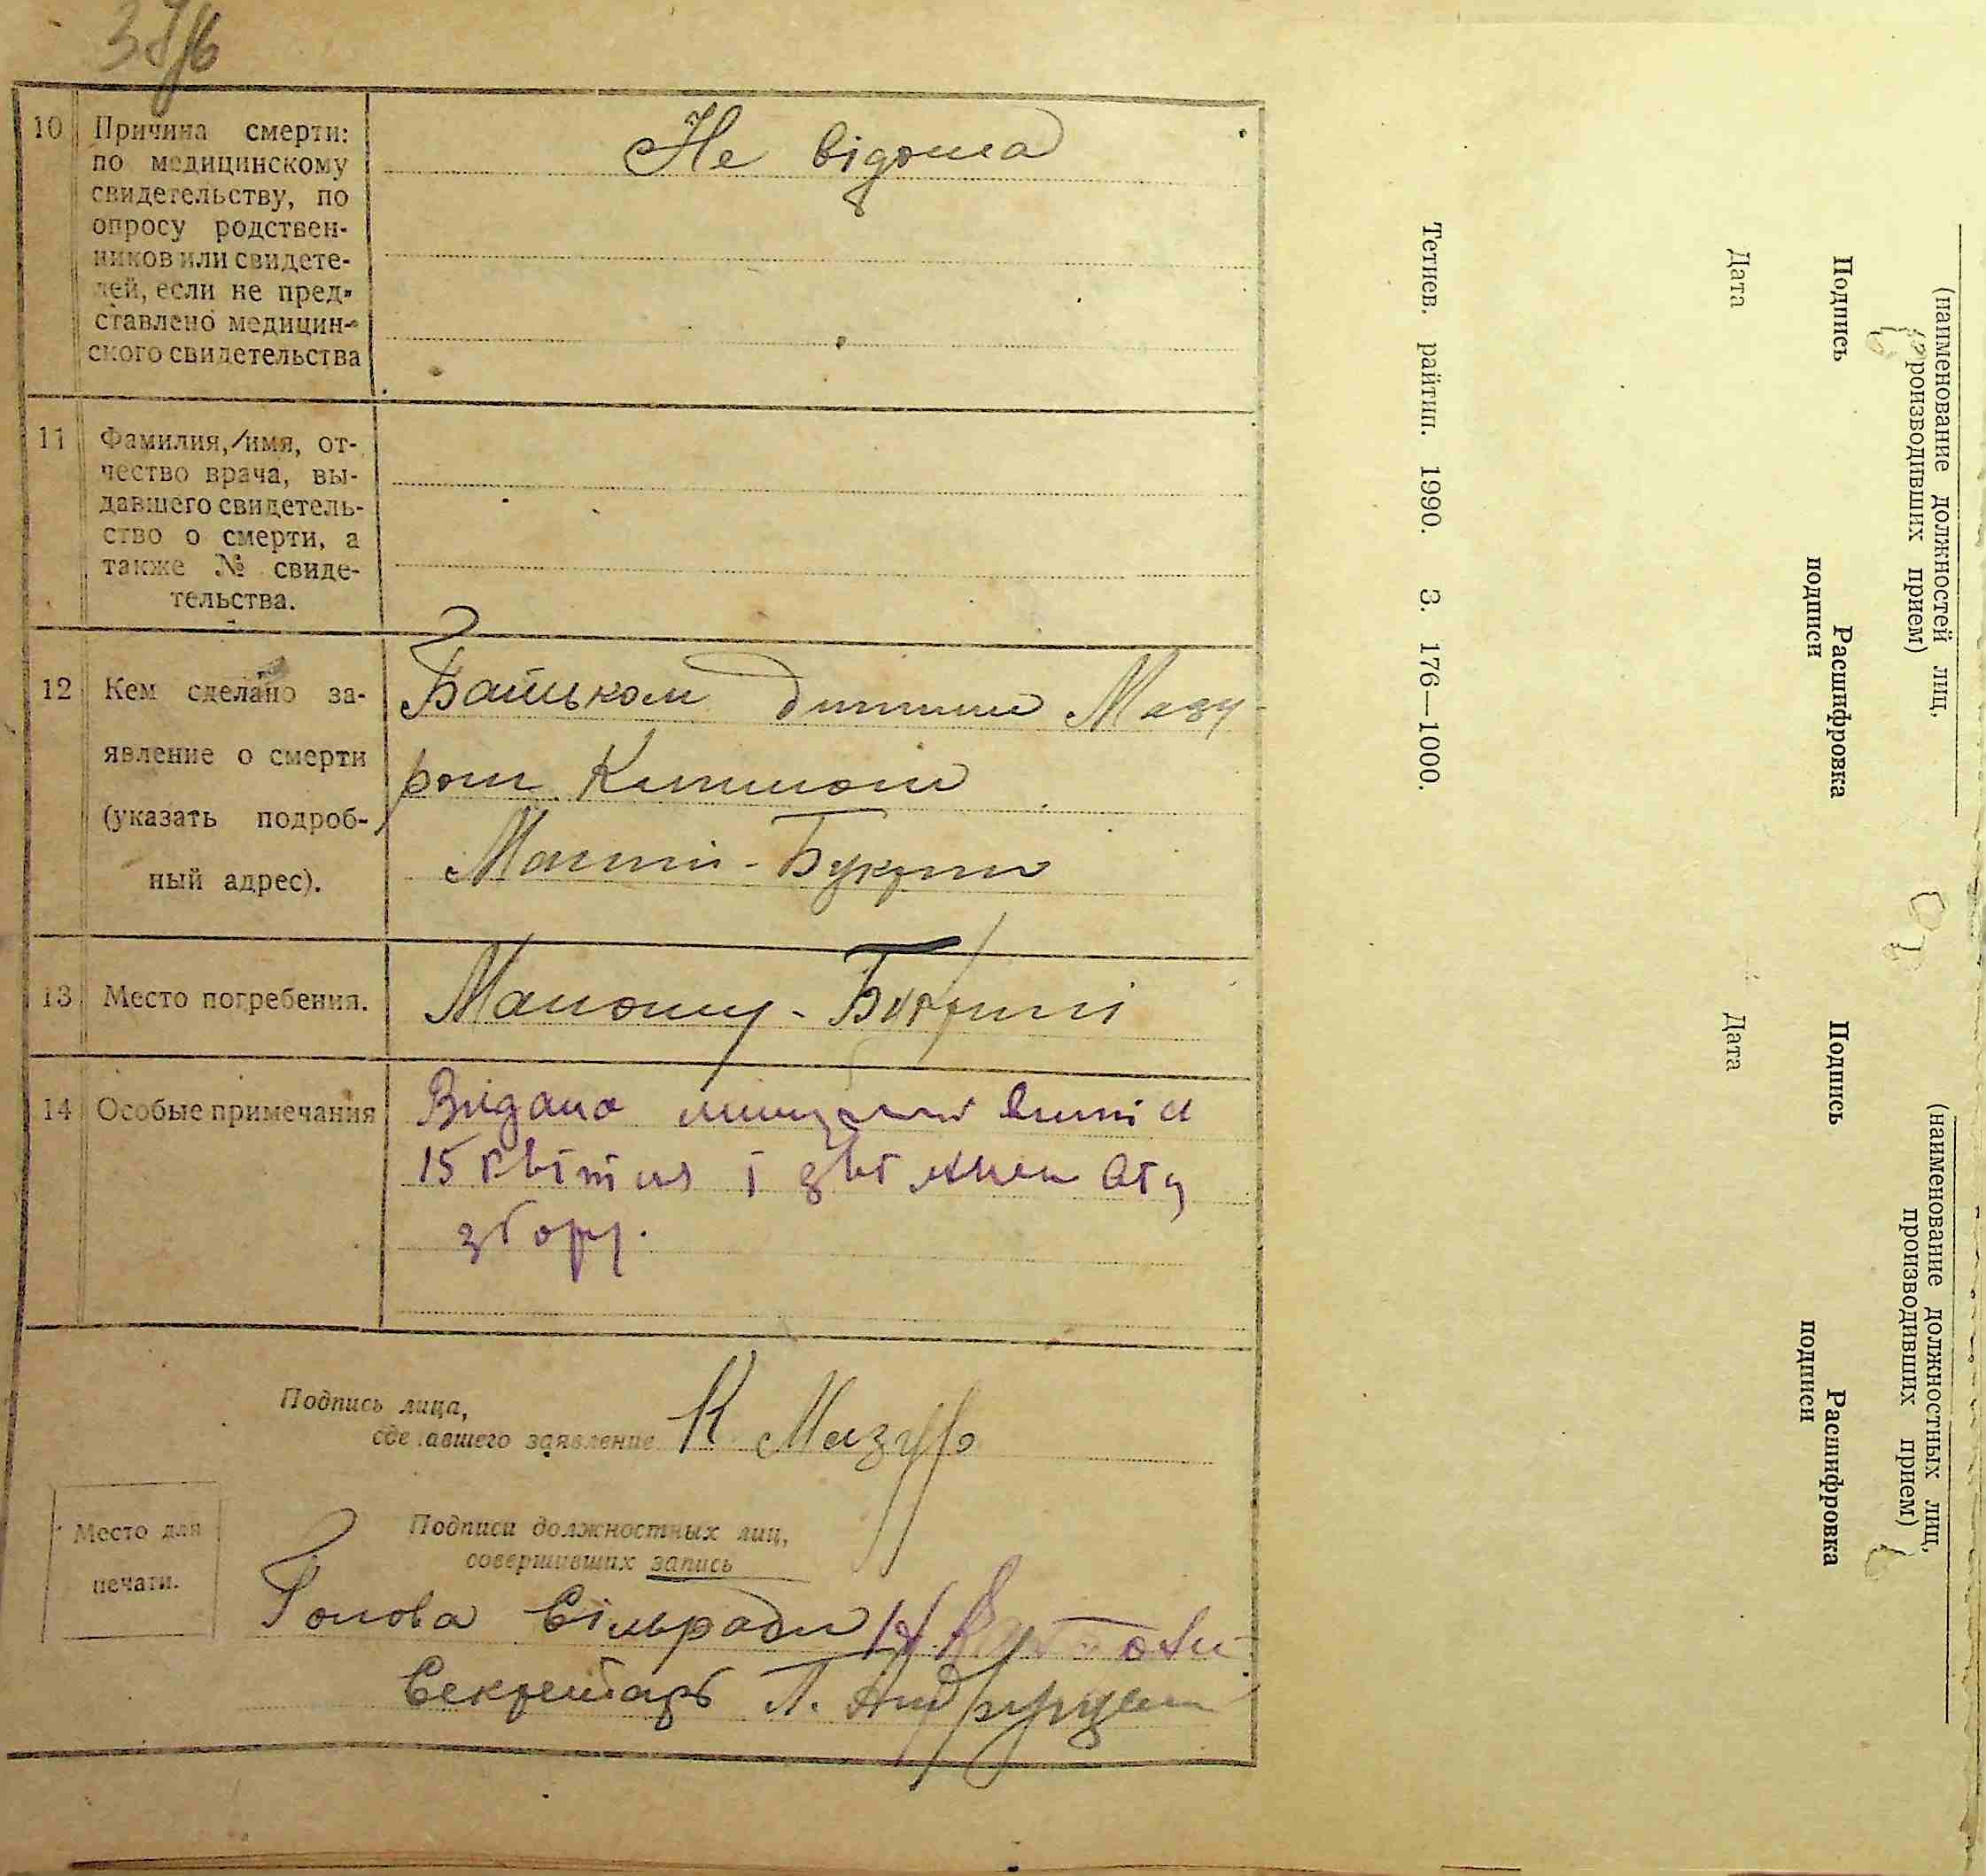 10 Причина смерти:
по медицинскому
свидетельству, по
опросу родствен-
ников или свидете-
лей, если не пред-
ставлено медицин-
ского свидетельства
Не відома
11 Фамилия, имя, от-
чество врача, вы-
давшего свидетель-
ство о смерти, а
также № свиде-
тельства.
12 Кем сделано за-
явление о смерти
(указать подроб-
ный адрес).
Батьком дитини Мазу-
ром
Малий-Букрин
13 Место погребения.
Малому-Букрині
14 Особые примечания
Видана
15
збору.
Подпись лица,
сделавшего заявление К Мазур
Место для
печати.
Подписи должностных лиц,
совершивших запись
Голова сільради
Секретарь П.
Тетиев. райтип. 1990. З. 176—1000.
(наименование должностей лиц,
производивших прием)
Подпись Расшифровка
подписи
Дата
(наименование должностных лиц,
производивших прием)
Подпись Расшифровка
подписи
Дата